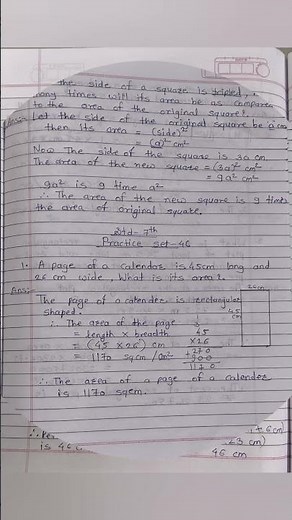 the side of a square is tripled,
many times will its area be as compare
to the area of the original square?
Let the side of the original square be a cm
then its area = (side)²
= (a)² cm²
Now The side of the square is 3a cm
The area of the new square = (3a)² cm²
= 9a² cm²
9a² is 9 time a²
∴ The area of the new square is 9 times
the area of original square.
Std - 7th
Practice set - 46
1. A page of a calendar is 45cm long and
26 cm wide. What is its area?
Ans:-
The page of a calendar is rectangular
shaped.
45
cm
∴ The area of the page
= length × breadth
45
= (45 × 26) cm
×26
= 1170 sqcm / cm²
+270
900
1170
∴ The area of a page of a calendar
is 1170 sqcm.
∴ Pe
+6cm)
is 46
cm)
46 cm